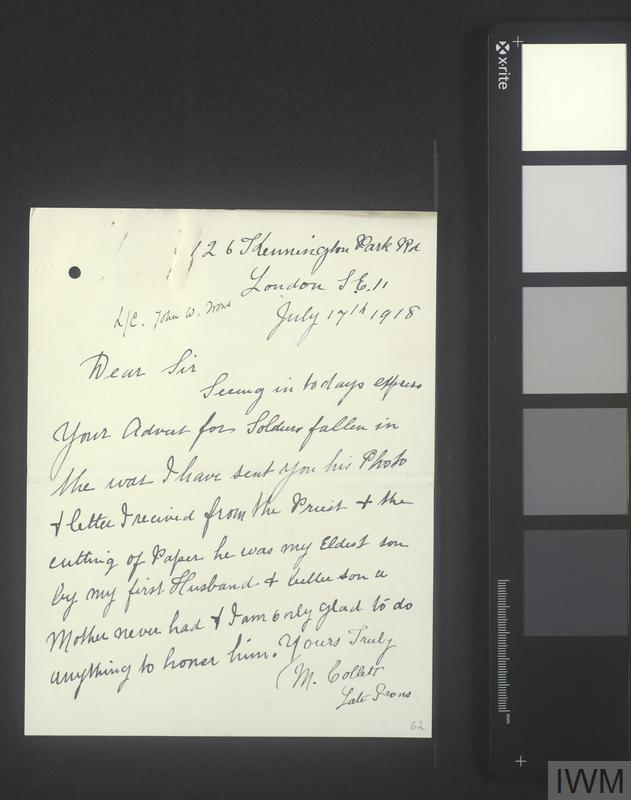 126 Kennington Park Rd
London S.E. 11
L/C. John W. Irons
July 17th 1918
Dear Sir
Seeing in to days express
Your Advert for Soldiers fallen in
the war I have sent you his Photo
& letter I recived from the Priest & the
cutting of Paper he was my Eldest son
by my first Husband & better son a
Mother never had & I am only glad to do
anything to honer him. Yours Truly
(M. Collett
Late Irons
62
x-rite
mm
IWM